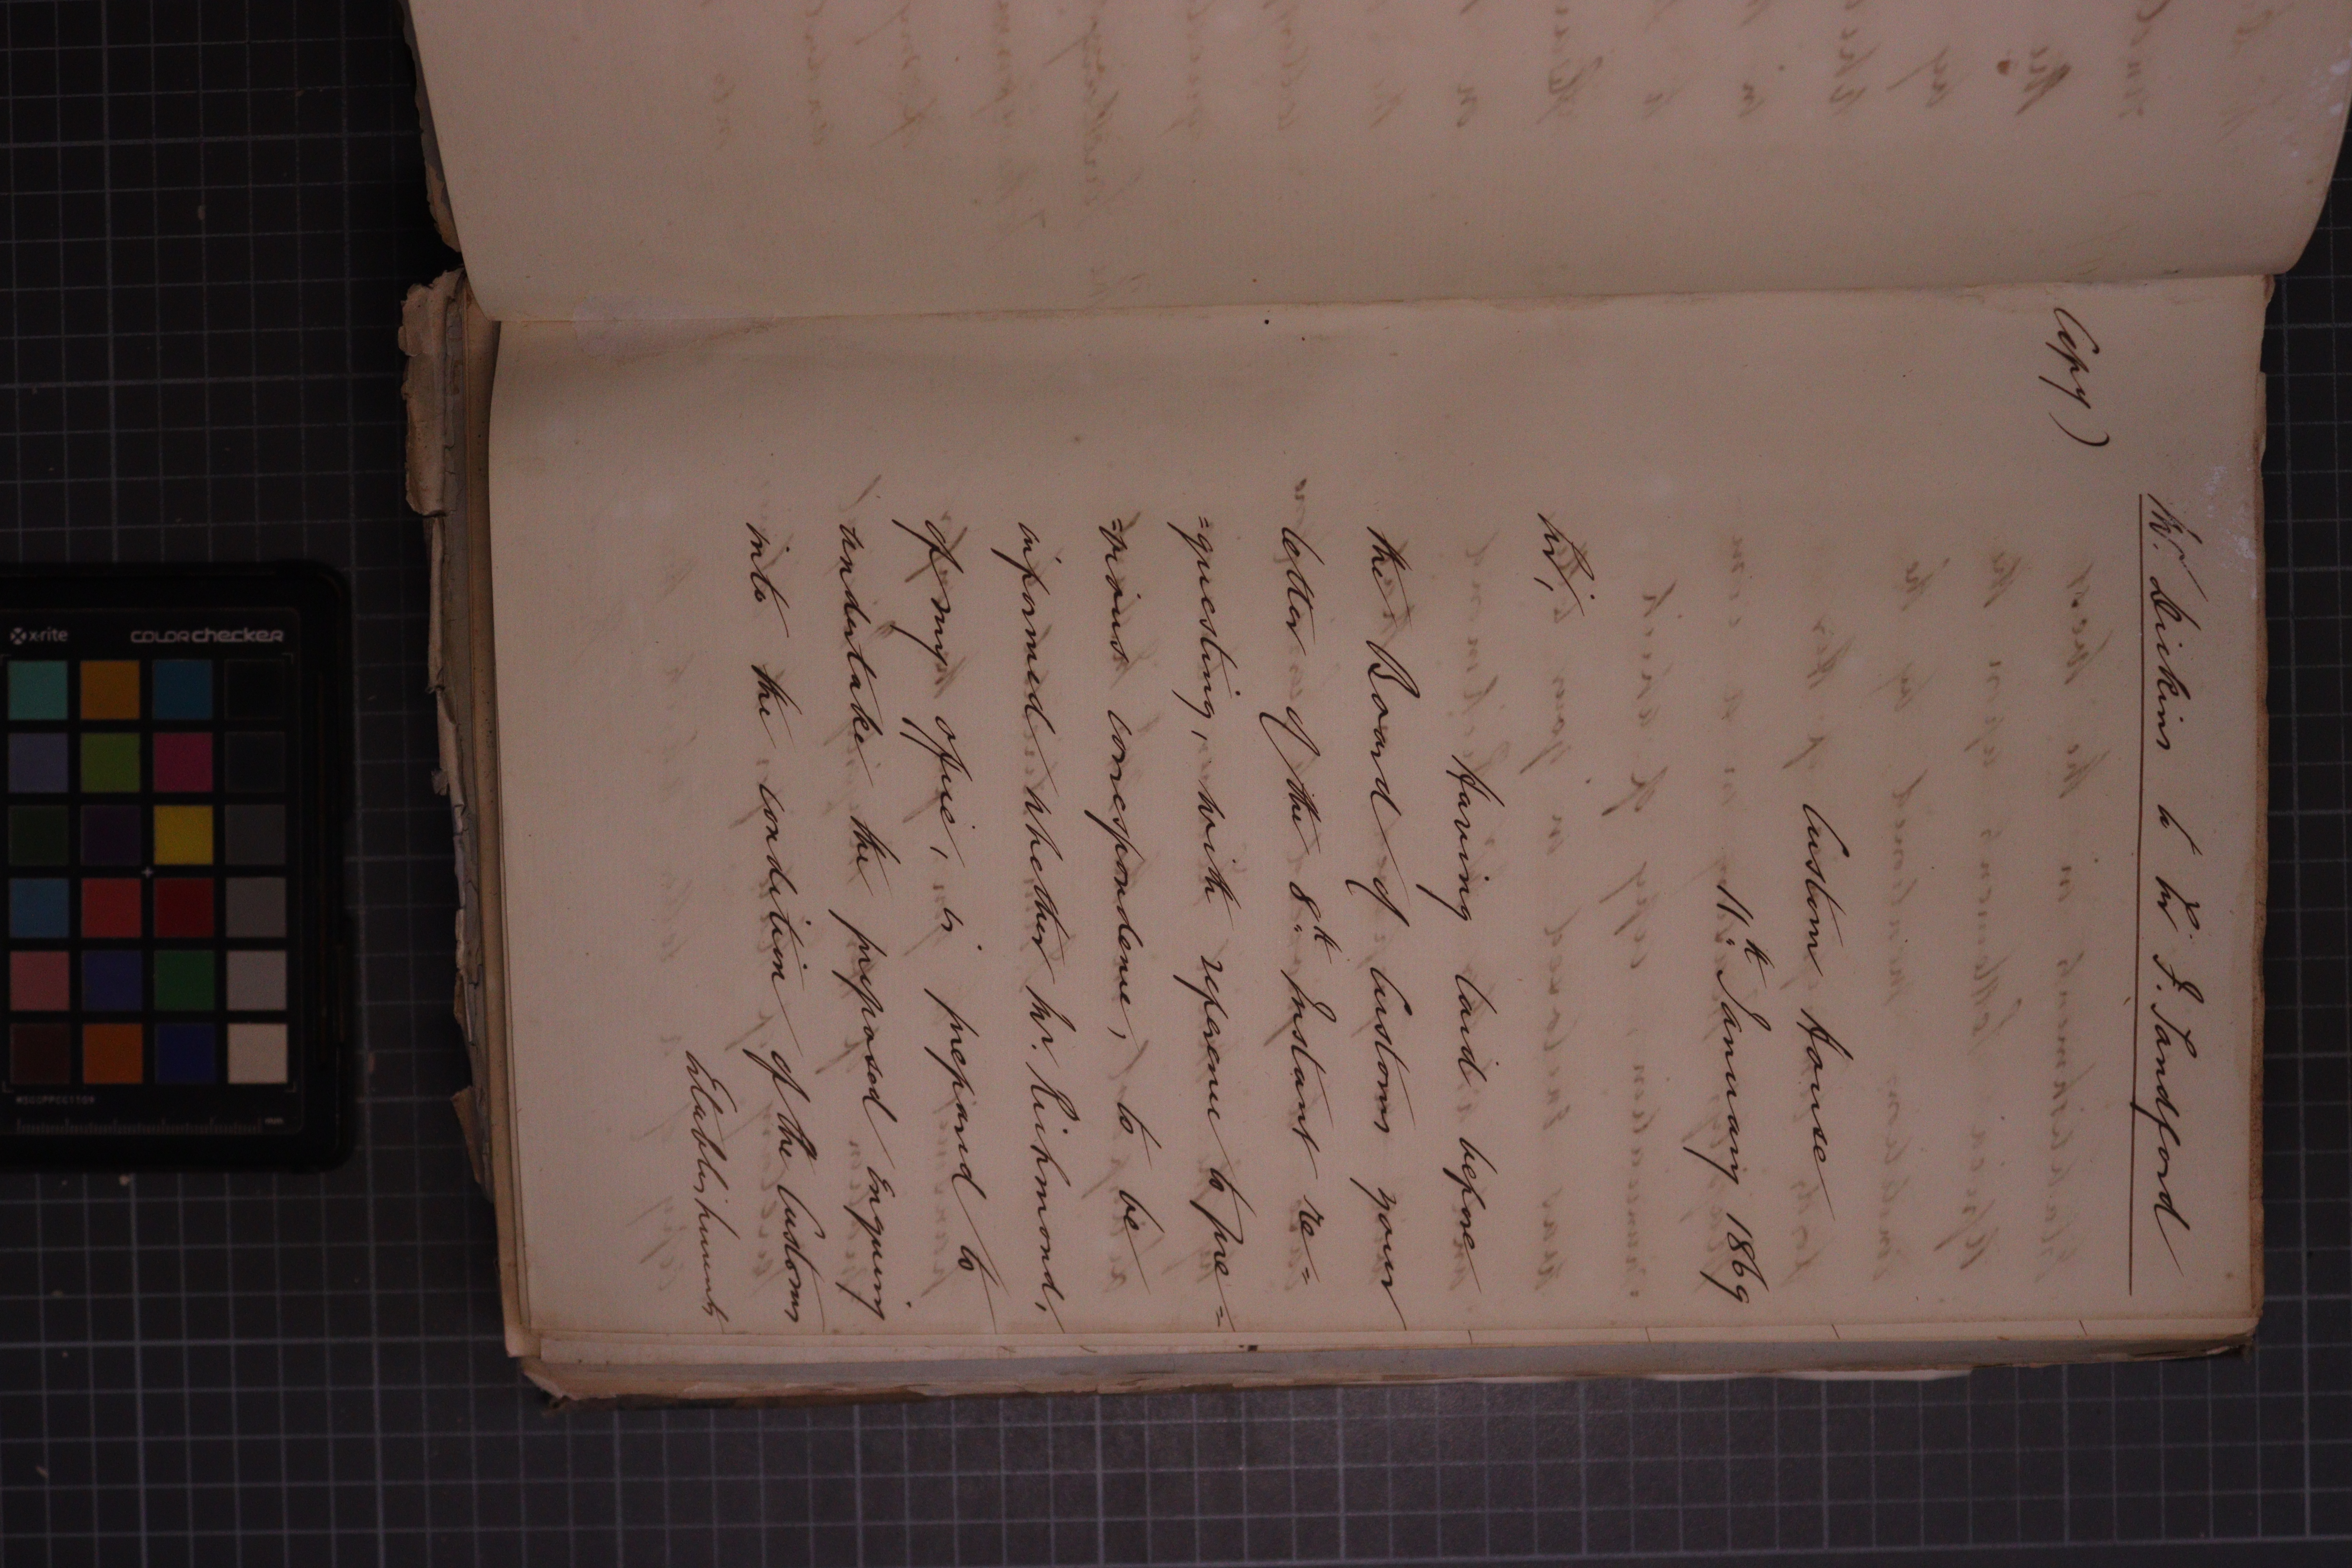 Mr. Dickins to Sir F. Sandford
Copy)
Custom House
11th. January 1869
Sir,
Having laid before
the Board of Customs your
letter of the 8th. Instant re=
=questing, with reference to pre=
=vious correspondence, to be
informed whether Mr. Richmond,
of my office, is prepared to
undertake the proposed Enquiry
into the condition of the Customs
Establishments
x-rite
COLORchecker